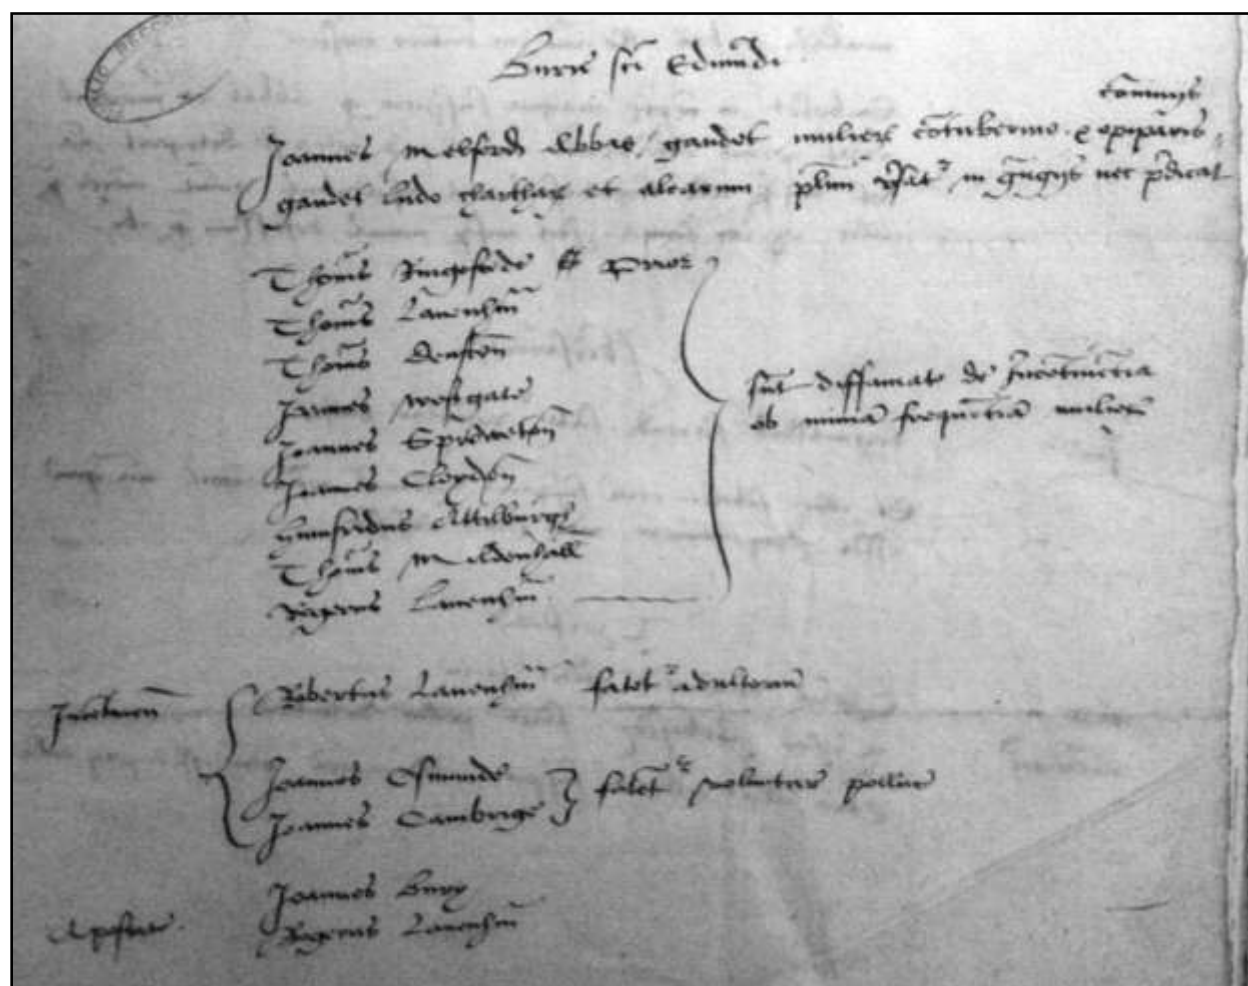 Burie sc̄i Edmūdi
cōviviis
Joannes Melford Abbas / gaudet mulierū cōtubernio & opiparis
gaudet ludo chartharū et alearum plim̄ v̄sat in grāgiis nec p̄dicat
Thoms̄ Ringstede Prior
Thoms̄ Lavenhm̄
Thoms̄ Denstōn
Joannes Westgate
Joannes Sproweton̄
Joannes Cloydon̄
Humfridus Attilburge
Thoms̄ Mildenhall
Rogerus Lavenhm̄
sūt diffamati de Incōtinētia
ob nimiā frequētiā mulierū
Incōtinēn
Robertus Lavenhm̄ fatetr adulteriū
Joannes Osmunde
Joannes Cambrige
fatētr volūtar pollue
Joannes Bury
Apostate
Rogerus Lavenhm̄